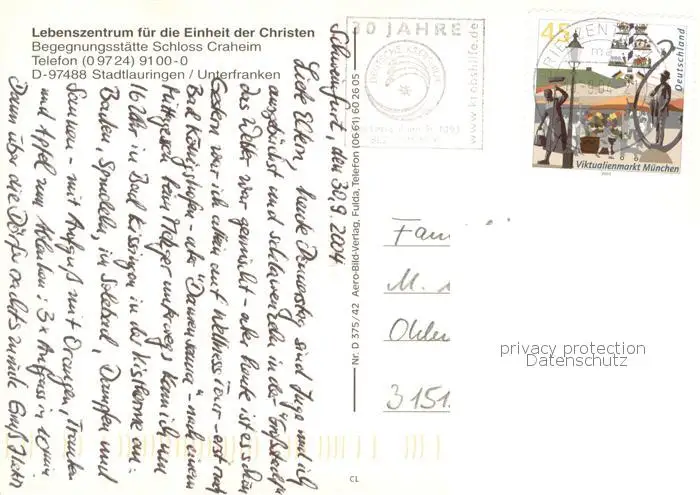 Lebenszentrum für die Einheit der Christen
Begegnungsstätte Schloss Craheim
Telefon (0 97 24) 91 00-0
D-97488 Stadtlauringen / Unterfranken
Schweinfurt, den 30.9.2004
Liebe Eltern, heute Donnerstag sind Inge und ich
ausgebüxt und schlawenzeln in der
das Wetter war gemischt - aber heute ist es schön
Gestern war ich allein auf Wellness Tour - erst mal
Bad Königshofen - aber "Damensauna" - nach einem
Mittagessen beim Metzger unterwegs kam ich um
16 Uhr in Bad Kissingen in der KissTherme an:
Baden, Sprudeln, in Solebad, Dampfen und
Saunen - mit Aufguß mit Orangen, Trauben
und Apfel zum Abkauen: 3x Aufguss in 10 min
Dann über die Dörfer nachts zurück Gruß
Nr. D 375/42 Aero-Bild-Verlag, Fulda, Telefon (06 61) 60 26 05
CL
30 JAHRE
DEUTSCHE KREBSHILFE
www.krebshilfe.de
BRIEFZENTRUM
45
Deutschland
Viktualienmarkt München
Fam
M.
3151
privacy protection
Datenschutz